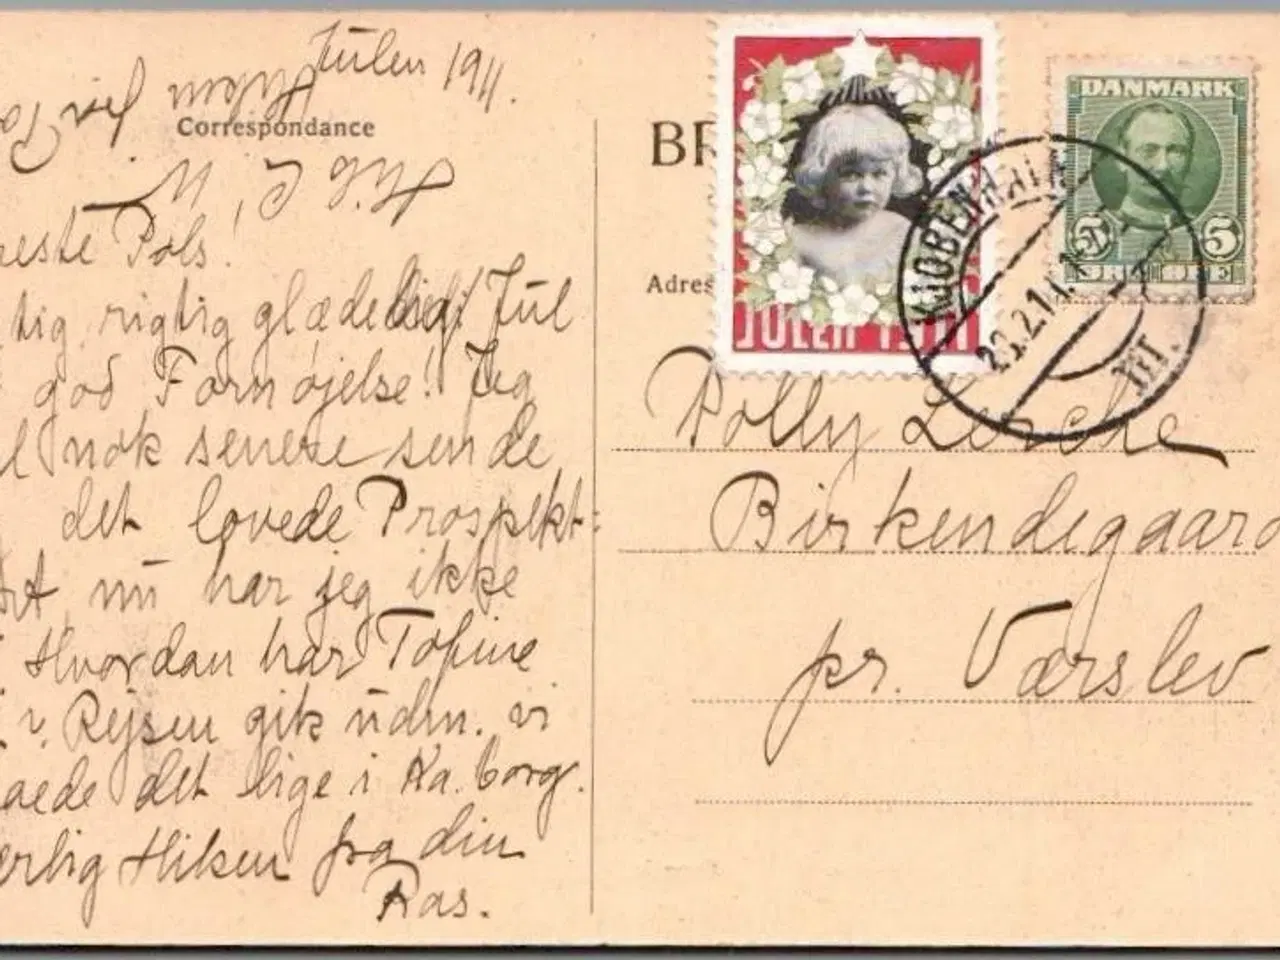 Julen 1911.
Correspondance
este Pols!
tig rigtig glædelig Jul
god Fornøjelse! Jeg
l nok senere sende
det lovede Prospekt:
nu har jeg ikke
Hvordan har Tofine
v. Rejsen gik udm. vi
aede det lige i Ka.borg.
ærlig Hilsen fra din
Ras.
BR
Adres
JULEN 1911
DANMARK
5 5
KJØBENHAVN
III.
Polly Lerche
Birkendegaard
pr. Værslev